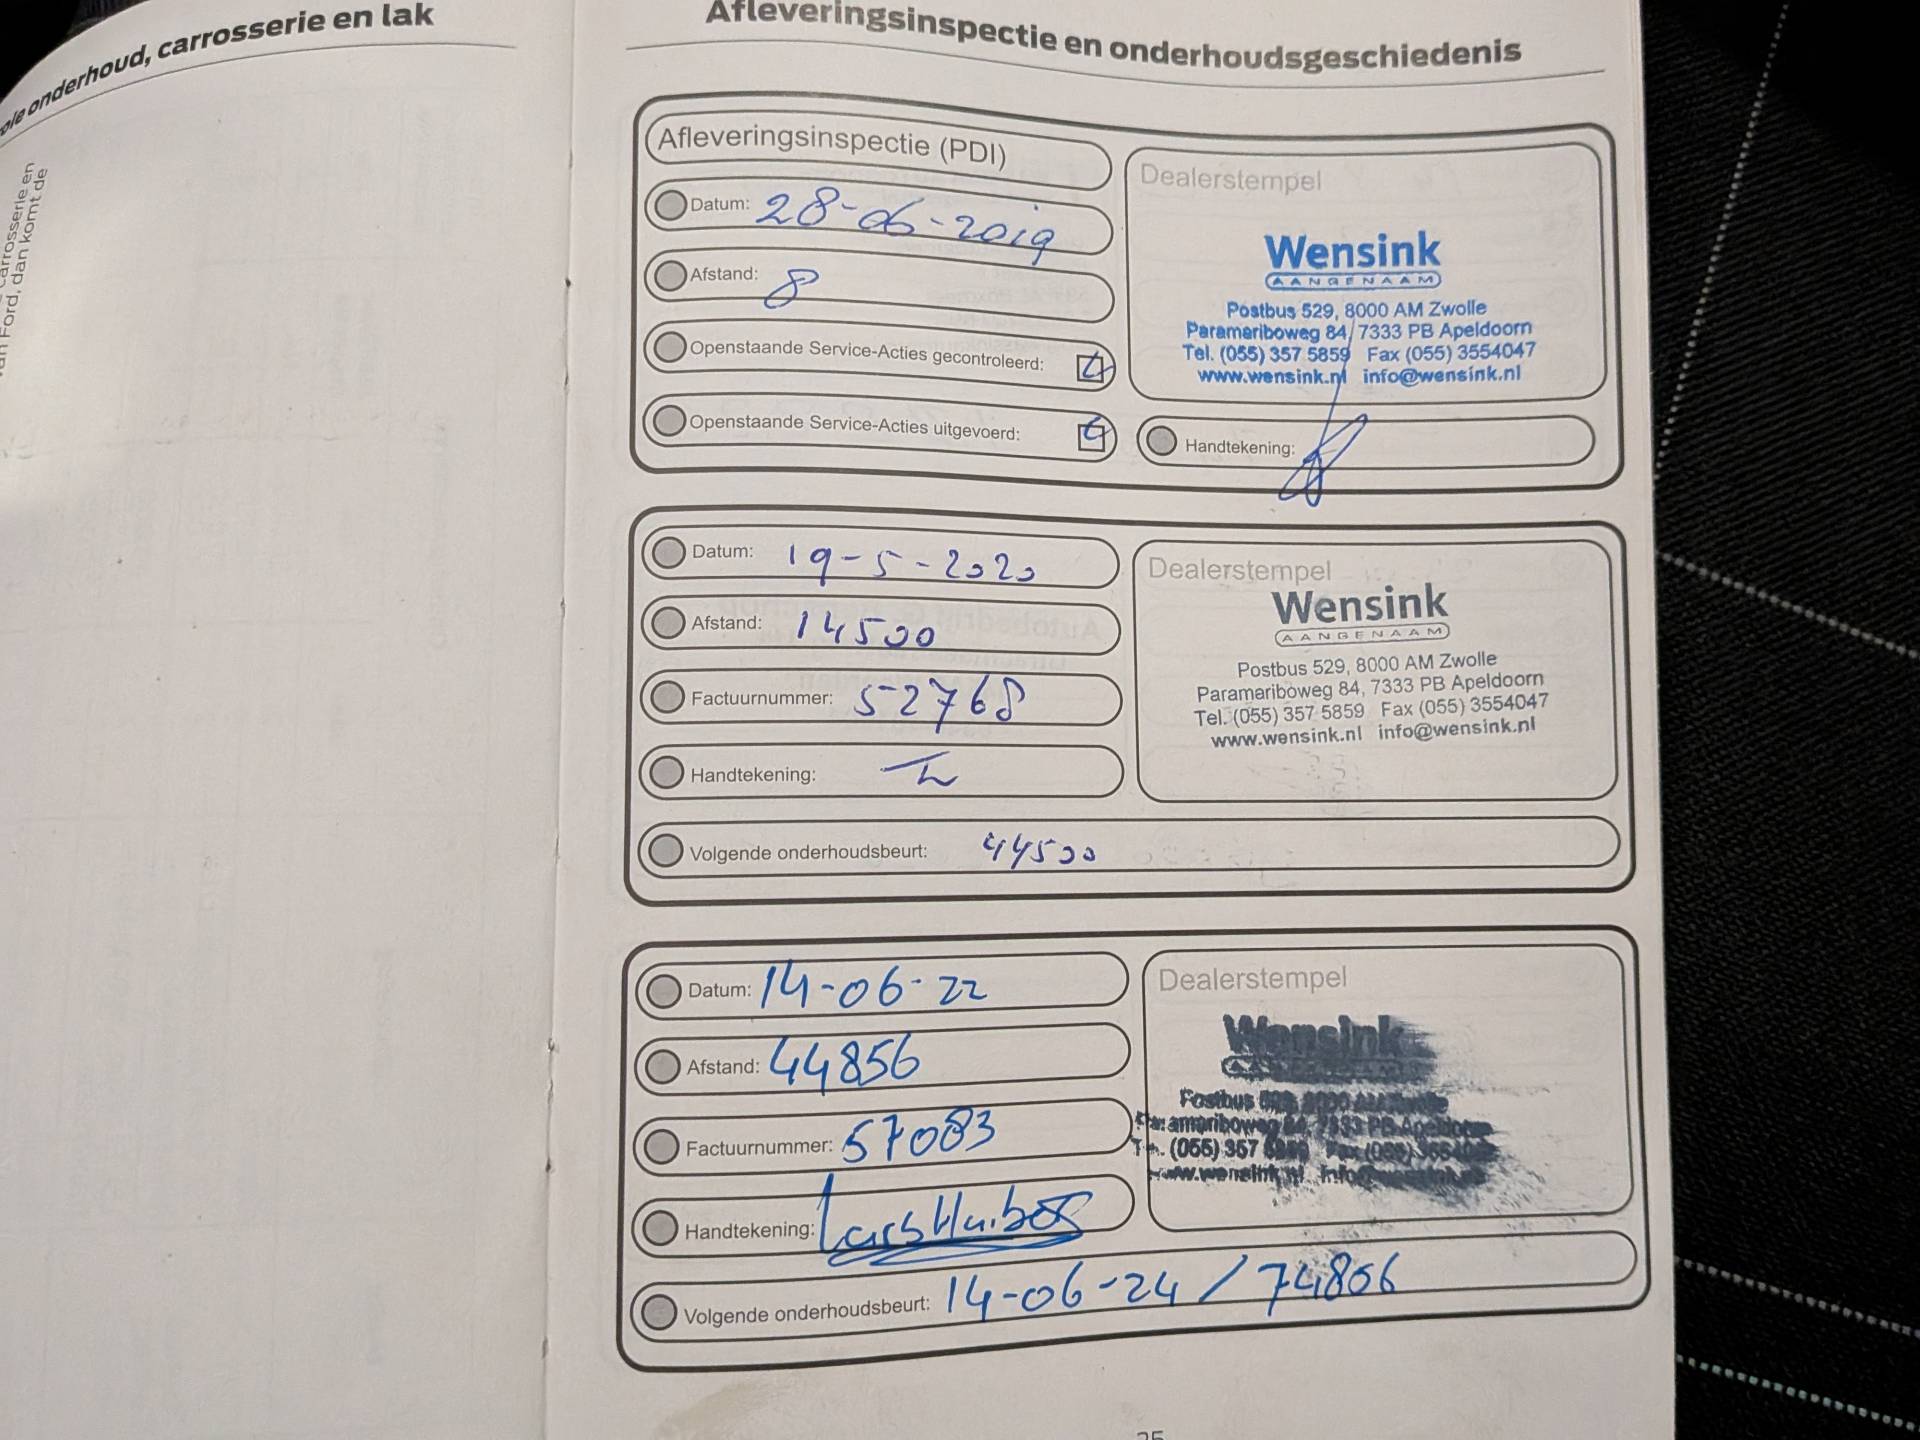 onderhoud, carrosserie en lak
carrosserie en
Ford, dan komt de
Afleveringsinspectie en onderhoudsgeschiedenis
Afleveringsinspectie (PDI)
Datum: 28-06-2019
Afstand: 8
Openstaande Service-Acties gecontroleerd:
Openstaande Service-Acties uitgevoerd:
Dealerstempel
Wensink
AANGENAAM
Postbus 529, 8000 AM Zwolle
Paramariboweg 84, 7333 PB Apeldoorn
Tel. (055) 357 5859 Fax (055) 3554047
www.wensink.nl info@wensink.nl
Handtekening:
Datum: 19-5-2020
Afstand: 14500
Factuurnummer: 52768
Handtekening:
Volgende onderhoudsbeurt: 44500
Dealerstempel
Wensink
AANGENAAM
Postbus 529, 8000 AM Zwolle
Paramariboweg 84, 7333 PB Apeldoorn
Tel. (055) 357 5859 Fax (055) 3554047
www.wensink.nl info@wensink.nl
Datum: 14-06-22
Afstand: 44856
Factuurnummer: 57083
Handtekening: Lars
Volgende onderhoudsbeurt: 14-06-24 / 74856
Dealerstempel
Wensink
Postbus
Paramariboweg 84, 7333 PB
(055) 357